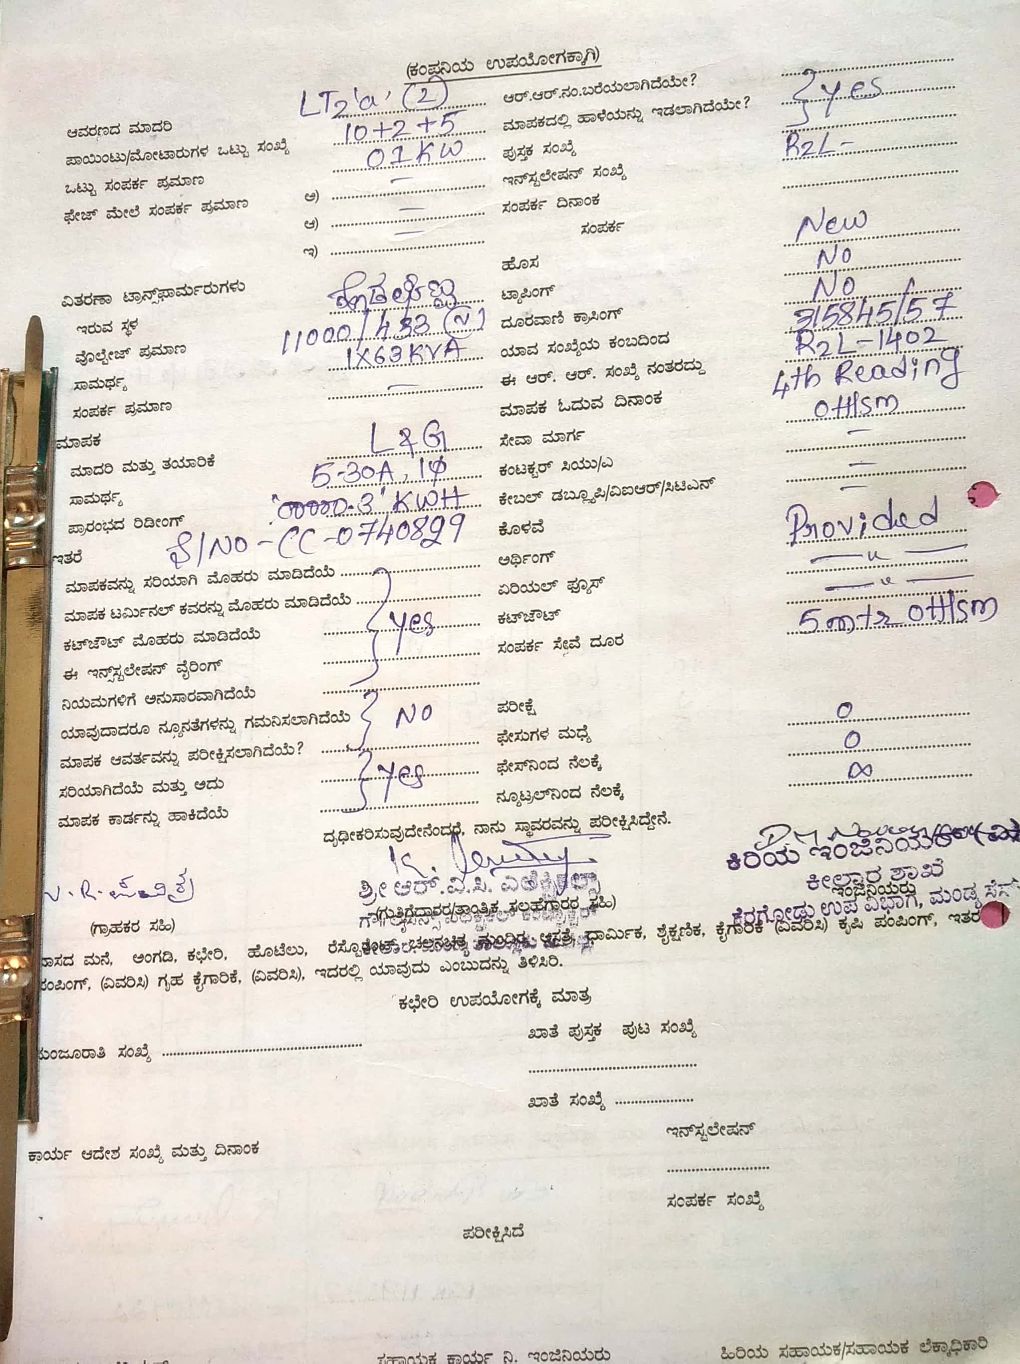 (ಕಂಪನಿಯ ಉಪಯೋಗಕ್ಕಾಗಿ)
ಆವರಣದ ಮಾದರಿ LT2'a' (2) ಆರ್.ಆರ್.ನಂ.ಬರೆಯಲಾಗಿದೆಯೇ?
ಪಾಯಿಂಟು/ಮೋಟಾರುಗಳ ಒಟ್ಟು ಸಂಖ್ಯೆ 10+2+5 ಮಾಪಕದಲ್ಲಿ ಹಾಳೆಯನ್ನು ಇಡಲಾಗಿದೆಯೇ? yes
ಒಟ್ಟು ಸಂಪರ್ಕ ಪ್ರಮಾಣ 01KW ಪುಸ್ತಕ ಸಂಖ್ಯೆ
ಫೇಜ್ ಮೇಲೆ ಸಂಪರ್ಕ ಪ್ರಮಾಣ ಅ) — ಇನ್‌ಸ್ಟಲೇಷನ್ ಸಂಖ್ಯೆ R2L-
ಆ) — ಸಂಪರ್ಕ ದಿನಾಂಕ
ಇ) — ಸಂಪರ್ಕ
ವಿತರಣಾ ಟ್ರಾನ್ಸ್‌ಫಾರ್ಮರುಗಳು ಹೊಸ New
ಇರುವ ಸ್ಥಳ ಟ್ಯಾಪಿಂಗ್ No
ವೋಲ್ಟೇಜ್ ಪ್ರಮಾಣ 11000/433 (V) ದೂರವಾಣಿ ಕ್ರಾಸಿಂಗ್ No
ಸಾಮರ್ಥ್ಯ 1X63KVA ಯಾವ ಸಂಖ್ಯೆಯ ಕಂಬದಿಂದ 315845/57
ಸಂಪರ್ಕ ಪ್ರಮಾಣ — ಈ ಆರ್. ಆರ್. ಸಂಖ್ಯೆ ನಂತರದ್ದು R2L-1402
ಮಾಪಕ ಮಾಪಕ ಓದುವ ದಿನಾಂಕ 4th Reading
ಮಾದರಿ ಮತ್ತು ತಯಾರಿಕೆ L&G ಸೇವಾ ಮಾರ್ಗ
ಸಾಮರ್ಥ್ಯ 5-30A, 1φ ಕಂಟಕ್ಟರ್ ಸಿಯು/ಎ —
ಪ್ರಾರಂಭದ ರಿಡೀಂಗ್ '00000.3' KWH ಕೇಬಲ್ ಡಬ್ಲ್ಯೂಪಿ/ವಿಐಆರ್/ಸಿಟಿಎನ್ —
ಇತರೆ S/NO-CC-0740899 ಕೊಳವೆ —
ಮಾಪಕವನ್ನು ಸರಿಯಾಗಿ ಮೊಹರು ಮಾಡಿದೆಯೆ ಅರ್ಥಿಂಗ್ Provided
ಮಾಪಕ ಟರ್ಮಿನಲ್ ಕವರನ್ನು ಮೊಹರು ಮಾಡಿದೆಯೆ ಏರಿಯಲ್ ಫ್ಯೂಸ್ — " —
ಕಟ್‌ಔಟ್ ಮೊಹರು ಮಾಡಿದೆಯೆ yes ಕಟ್‌ಔಟ್ — " —
ಈ ಇನ್ಸ್‌ಸ್ಟಲೇಷನ್ ವೈರಿಂಗ್ ಸಂಪರ್ಕ ಸೇವೆ ದೂರ
ನಿಯಮಗಳಿಗೆ ಅನುಸಾರವಾಗಿದೆಯೆ
ಯಾವುದಾದರೂ ನ್ಯೂನತೆಗಳನ್ನು ಗಮನಿಸಲಾಗಿದೆಯೆ NO ಪರೀಕ್ಷೆ
ಮಾಪಕ ಆವರ್ತವನ್ನು ಪರೀಕ್ಷಿಸಲಾಗಿದೆಯೆ? ಫೇಸುಗಳ ಮಧ್ಯೆ 0
ಸರಿಯಾಗಿದೆಯೆ ಮತ್ತು ಅದು yes ಫೇಸ್‌ನಿಂದ ನೆಲಕ್ಕೆ 0
ಮಾಪಕ ಕಾರ್ಡನ್ನು ಹಾಕಿದೆಯೆ ನ್ಯೂಟ್ರಲ್‌ನಿಂದ ನೆಲಕ್ಕೆ ∞
ದೃಢೀಕರಿಸುವುದೇನೆಂದರೆ, ನಾನು ಸ್ಥಾವರವನ್ನು ಪರೀಕ್ಷಿಸಿದ್ದೇನೆ.
ಕಿರಿಯ ಇಂಜಿನಿಯರ್ (ವಿ)
ಶ್ರೀ ಆರ್.ವಿ.ಸಿ. ಕೀಲ್ಯಾರ ಶಾಖೆ
ಇಂಜಿನಿಯರು
(ಗ್ರಾಹಕರ ಸಹಿ) (ಗುತ್ತಿಗೆದಾರರ/ತಾಂತ್ರಿಕ ಸಲಹೆಗಾರರ ಸಹಿ) ಕೆರಗೋಡು ಉಪ ವಿಭಾಗ, ಮಂಡ್ಯ
ವಾಸದ ಮನೆ, ಅಂಗಡಿ, ಕಛೇರಿ, ಹೊಟೆಲು, ರೆಸ್ಟೊರೆಂಟ್, ಚಲನಚಿತ್ರ ಮಂದಿರ, ಆಸ್ಪತ್ರೆ, ಧಾರ್ಮಿಕ, ಶೈಕ್ಷಣಿಕ, ಕೈಗಾರಿಕೆ (ವಿವರಿಸಿ) ಕೃಷಿ ಪಂಪಿಂಗ್, ಇತರ
ಪಂಪಿಂಗ್, (ವಿವರಿಸಿ) ಗೃಹ ಕೈಗಾರಿಕೆ, (ವಿವರಿಸಿ), ಇದರಲ್ಲಿ ಯಾವುದು ಎಂಬುದನ್ನು ತಿಳಿಸಿರಿ.
ಕಛೇರಿ ಉಪಯೋಗಕ್ಕೆ ಮಾತ್ರ
ಮಂಜೂರಾತಿ ಸಂಖ್ಯೆ ಖಾತೆ ಪುಸ್ತಕ ಪುಟ ಸಂಖ್ಯೆ
ಖಾತೆ ಸಂಖ್ಯೆ
ಇನ್‌ಸ್ಟಲೇಷನ್
ಕಾರ್ಯ ಆದೇಶ ಸಂಖ್ಯೆ ಮತ್ತು ದಿನಾಂಕ
ಸಂಪರ್ಕ ಸಂಖ್ಯೆ
ಪರೀಕ್ಷಿಸಿದೆ
ಸಹಾಯಕ ಕಾರ್ಯ ನಿ. ಇಂಜಿನಿಯರು ಹಿರಿಯ ಸಹಾಯಕ/ಸಹಾಯಕ ಲೆಕ್ಕಾಧಿಕಾರಿ